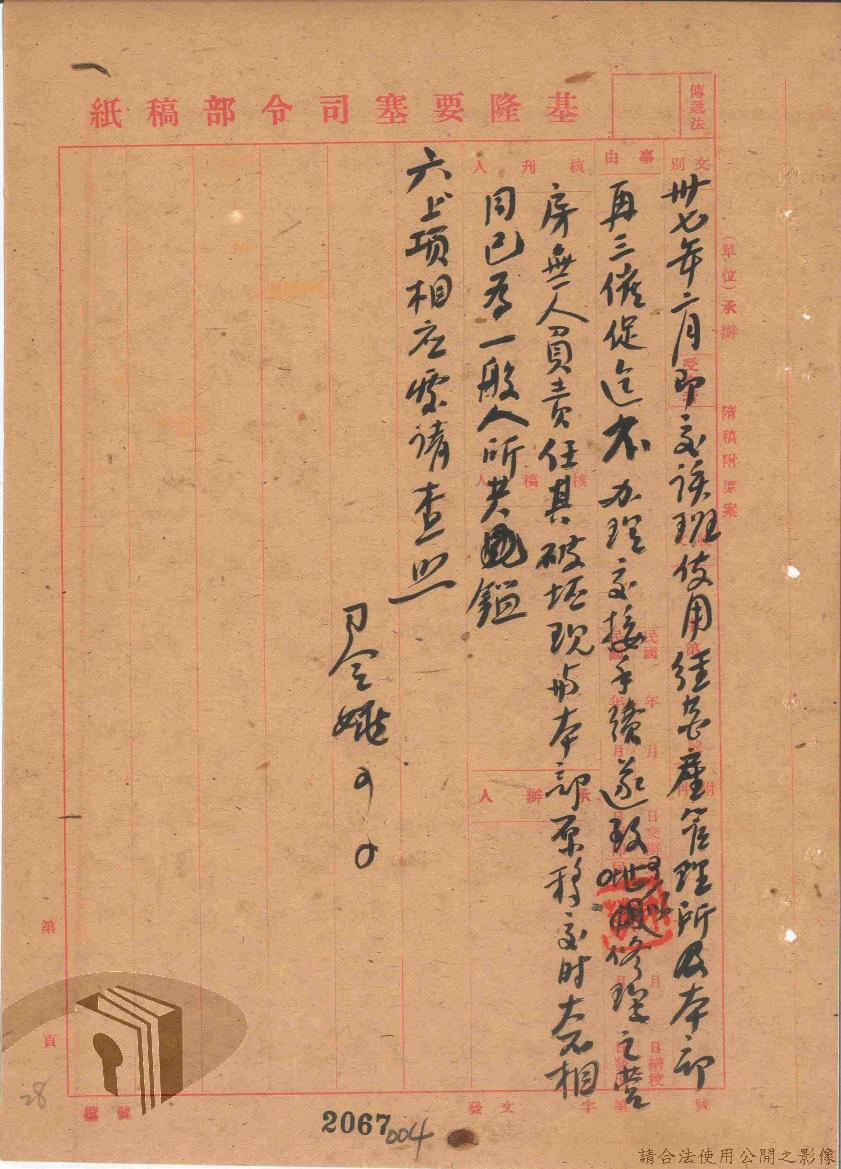 基隆要塞司令部稿紙
傳遞法
文別
事由
核刊人
(單位)承辦
隋稿附原案
卅七年六月即交該班使用經營產管理所及本部
再三催促迄不办理交接手續遂致地修理之營
房無人負責任其破坏現与本部原移交时大不相
同已為一般人所共鑑
六上項相应電請查照
司令姚〇〇
核稿人
承辦人
民國 年 月
日繕校
第 頁
檔號
發文 字 第 號
2067
004
28
請合法使用公開之影像